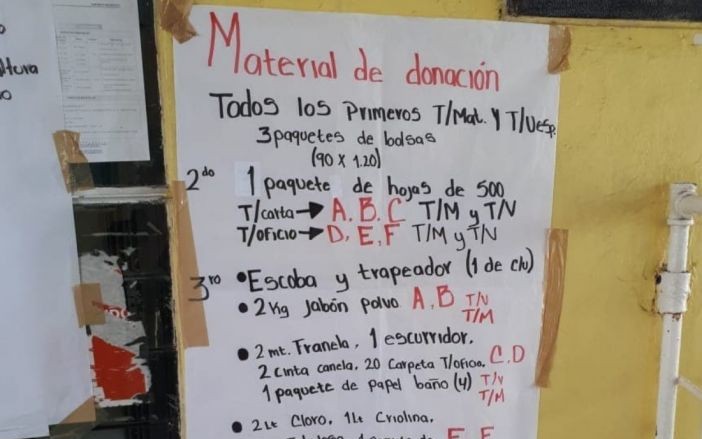 ltura
Material de donación
Todos los Primeros T/Mat. Y T/Vesp.
3 paquetes de bolsas
(90 X 1.20)
2do 1 paquete de hojas de 500
T/carta → A, B, C T/M y T/V
T/oficio → D, E, F T/M y T/V
3ro • Escoba y trapeador (1 de c/u)
• 2 Kg Jabón polvo A, B T/V
T/M
• 2 mt. Franela, 1 escurridor,
2 cinta canela, 20 Carpeta T/oficio, C, D
1 paquete de papel baño (4) T/V
T/M
• 2 Lt Cloro, 1 Lt Criolina,
E, F